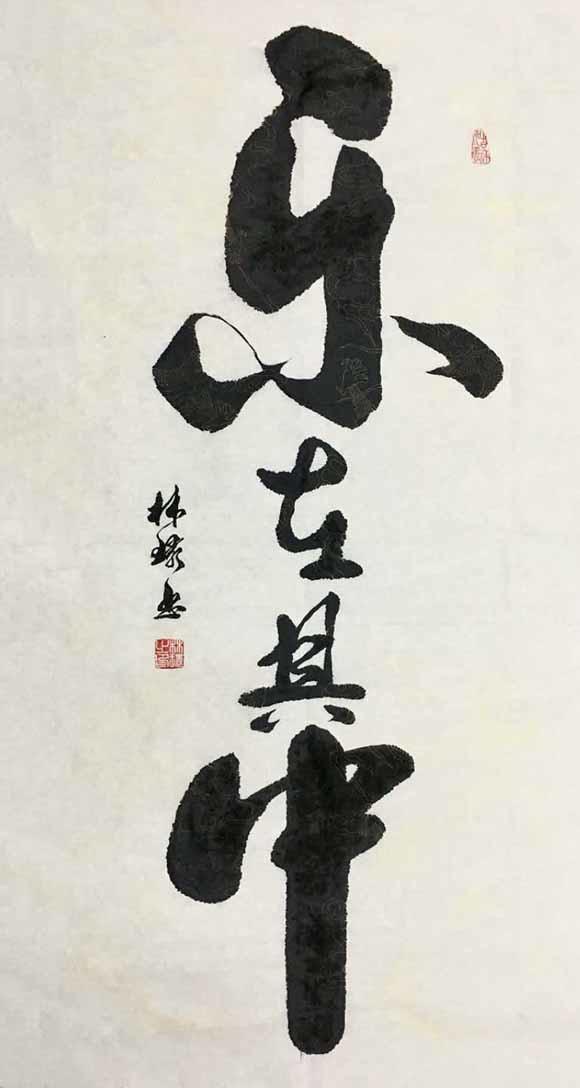 乐在其中
林
书